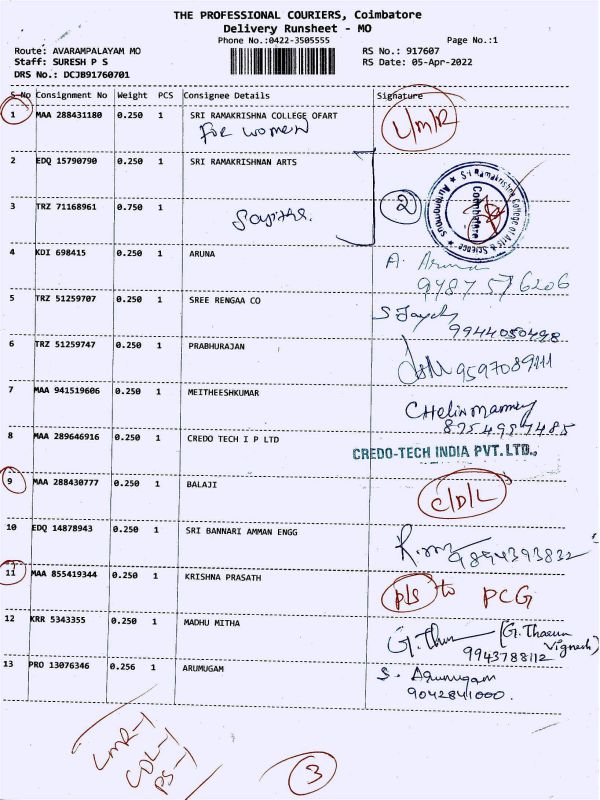 THE PROFESSIONAL COURIERS, Coimbatore
Delivery Runsheet - MO
Phone No.:0422-3505555 Page No.:1
Route: AVARAMPALAYAM MO RS No.: 917607
Staff: SURESH P S RS Date: 05-Apr-2022
DRS No.: DCJB91760701
S No Consignment No Weight PCS Consignee Details Signature
1 MAA 288431180 0.250 1 SRI RAMAKRISHNA COLLEGE OFART L/M/R
For women
2 EDQ 15790790 0.250 1 SRI RAMAKRISHNAN ARTS
Sri Ramakrishna College of Arts & Science ★ Autonomous ★
Coimbatore
3 TRZ 71168961 0.750 1 2
4 KDI 698415 0.250 1 ARUNA A. Aruna
9487576206
5 TRZ 51259707 0.250 1 SREE RENGAA CO
9944050498
6 TRZ 51259747 0.250 1 PRABHURAJAN 9597089111
7 MAA 941519606 0.250 1 MEITHEESHKUMAR
8754987485
8 MAA 289646916 0.250 1 CREDO TECH I P LTD CREDO-TECH INDIA PVT. LTD.,
9 MAA 288430777 0.250 1 BALAJI C/D/L
10 EDQ 14878943 0.250 1 SRI BANNARI AMMAN ENGG 9894393832
11 MAA 855419344 0.250 1 KRISHNA PRASATH P/S to PCG
12 KRR 5343355 0.250 1 MADHU MITHA (G. Tharun
Vignesh)
9943788112
13 PRO 13076346 0.256 1 ARUMUGAM S. Arumugam
9042841000.
LMR-1
CDL-1
PS-1
3